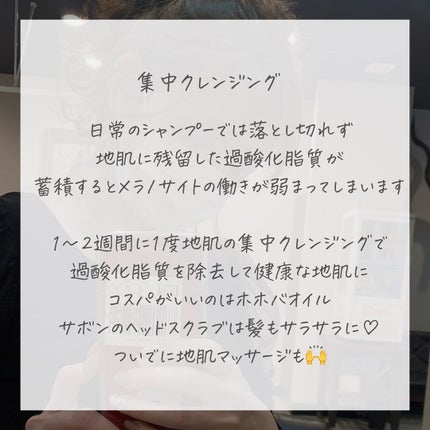 集中クレンジング
日常のシャンプーでは落とし切れず
地肌に残留した過酸化脂質が
蓄積するとメラノサイトの働きが弱まってしまいます
1～2週間に1度地肌の集中クレンジングで
過酸化脂質を除去して健康な地肌に
コスパがいいのはホホバオイル
サボンのヘッドスクラブは髪もサラサラに♡
ついでに地肌マッサージも🙌